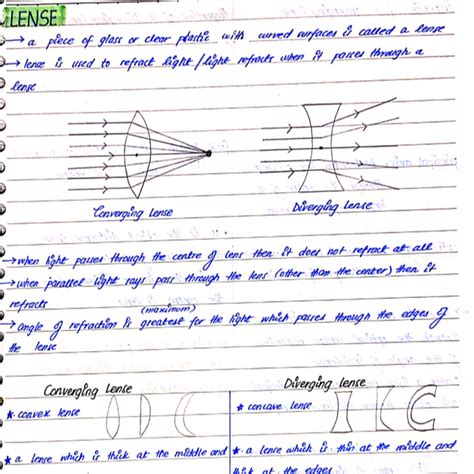 LENSE
→ a piece of glass or clear plastic with curved surfaces is called a lense
→ lense is used to refract light/light refracts when it passes through a
lense
Converging lense
Diverging lense
→ when light passes through the centre of lens then it does not refract at all
→ when parallel light rays pass through the lens (other than the center) then it
refracts
(maximum)
→ angle of refraction is greatest for the light which passes through the edges of
the lense
Converging Lense
Diverging lense
* convex lense
* concave lense
* a lense which is thick at the middle and
* a lense which is thin at the middle and
thick at the edges